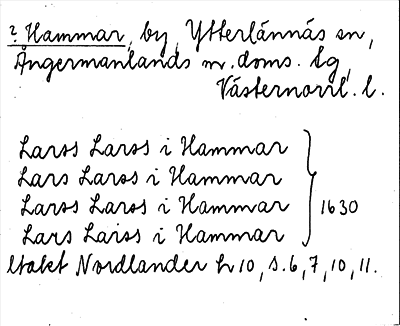 ? Hammar, by, Ytterlännäs sn,
Ångermanlands m. doms. tg,
Västernorrl. l.
Larss Larss i Hammar
Lars Larss i Hammar
Larss Larss i Hammar } 1630
Lars Larss i Hammar
Utakt Nordlander h 10, s. 6, 7, 10, 11.